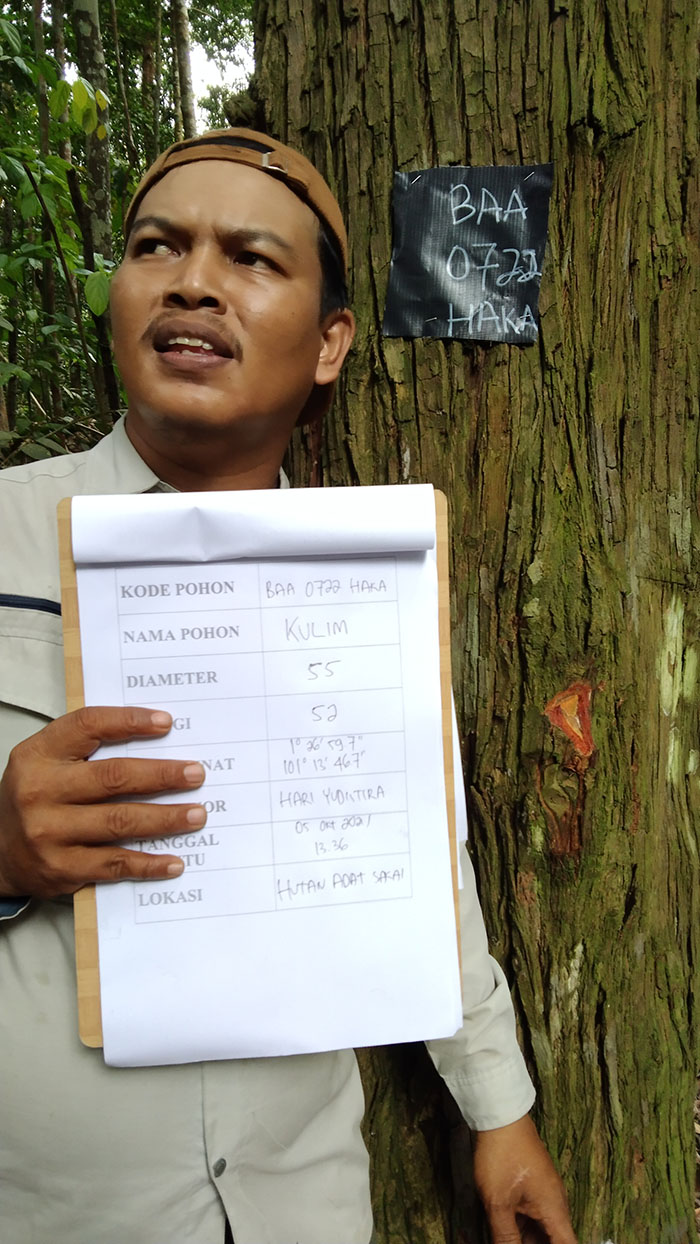 BAA
0722
HAKA
KODE POHON BAA 0722 HAKA
NAMA POHON KULIM
DIAMETER 55
GI 52
NAT 1° 26' 59.7"
101° 13' 46.7"
OR HARI YUDISTIRA
TANGGAL 05 Okt 2021
TU 13.36
LOKASI HUTAN ADAT SAKAI